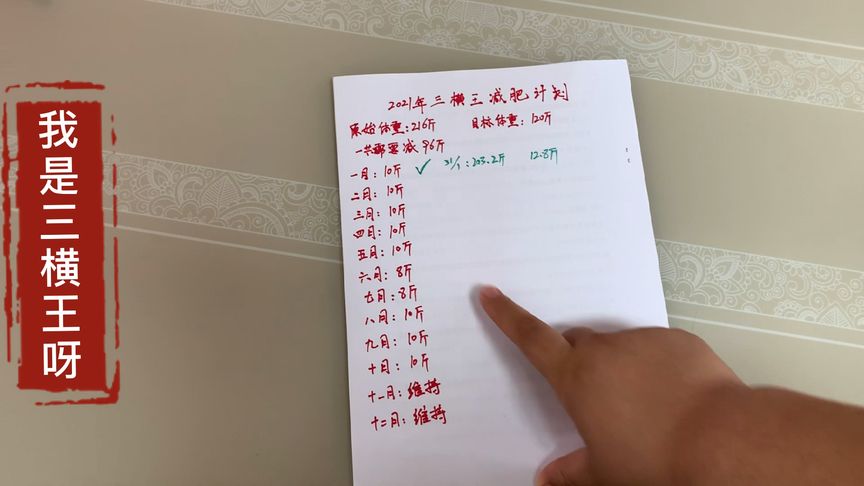 我是三横王呀
2021年三横王减肥计划
原始体重:216斤 目标体重:120斤
一共需要减96斤
一月:10斤 ✓ 31/1:203.2斤 12.8斤
二月:10斤
三月:10斤
四月:10斤
五月:10斤
六月:8斤
七月:8斤
八月:10斤
九月:10斤
十月:10斤
十一月:维持
十二月:维持